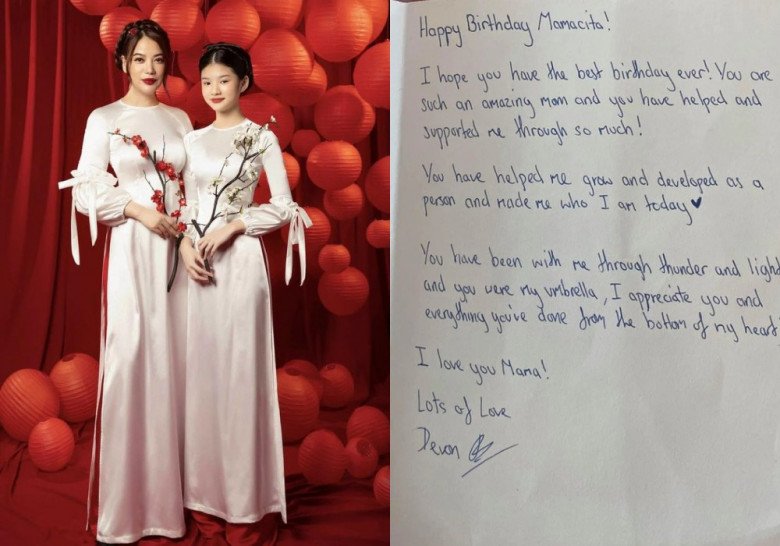 Happy Birthday Mamacita!
I hope you have the best birthday ever! You are
such an amazing mom and you have helped and
supported me through so much!
You have helped me grow and developed as a
person and made me who I am today♥
You have been with me through thunder and light
and you were my umbrella, I appreciate you and
everything you've done from the bottom of my heart
I love you Mama!
Lots of Love
Devon